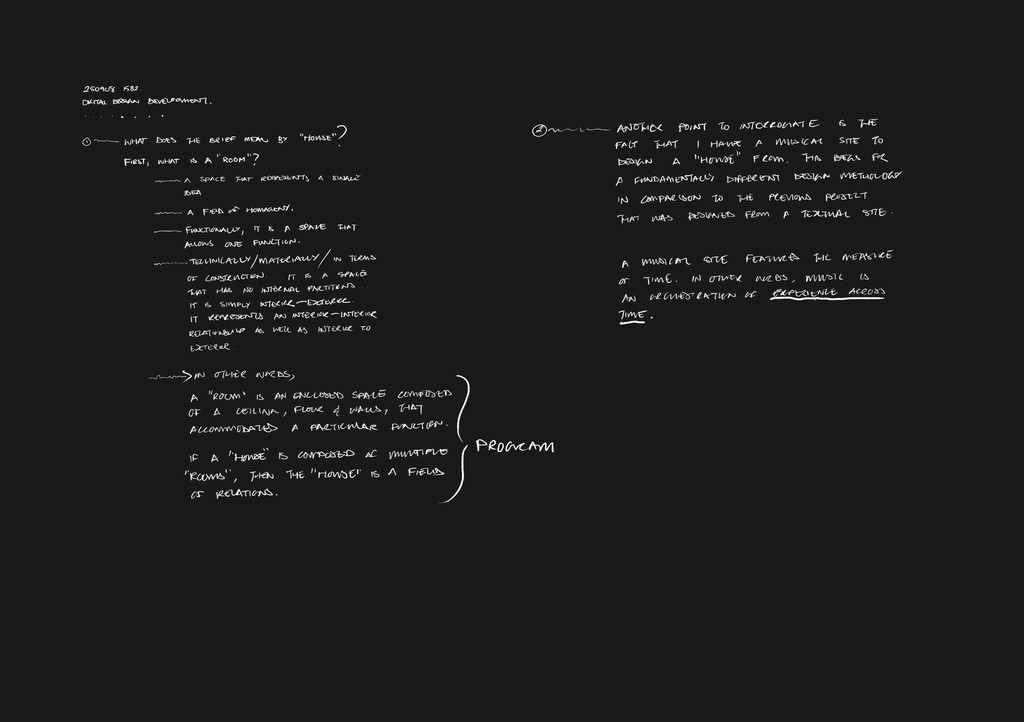 250908 1532.
DIGITAL DESIGN DEVELOPMENT.
. . . . . . .
① WHAT DOES THE BRIEF MEAN BY "HOUSE"?
FIRST, WHAT IS A "ROOM"?
A SPACE THAT REPRESENTS A SINGLE
IDEA
A FIELD OF HOMOGENY.
FUNCTIONALLY, IT IS A SPACE THAT
ALLOWS ONE FUNCTION.
TECHNICALLY/MATERIALLY/IN TERMS
OF CONSTRUCTION... IT IS A SPACE
THAT HAS NO INTERNAL PARTITIONS...
IT IS SIMPLY INTERIOR—EXTERIOR.
IT REPRESENTS AN INTERIOR—INTERIOR
RELATIONSHIP AS WELL AS INTERIOR TO
EXTERIOR.
IN OTHER WORDS,
A "ROOM" IS AN ENCLOSED SPACE COMPOSED
OF A CEILING, FLOOR & WALLS, THAT
ACCOMMODATES A PARTICULAR FUNCTION.
IF A "HOUSE" IS COMPOSED OF MULTIPLE
"ROOMS", THEN THE "HOUSE" IS A FIELD
OF RELATIONS.
PROGRAM
② ANOTHER POINT TO INTERROGATE IS THE
FACT THAT I HAVE A MUSICAL SITE TO
DESIGN A "HOUSE" FROM. THIS BEGS FOR
A FUNDAMENTALLY DIFFERENT DESIGN METHOLOGY
IN COMPARISON TO THE PREVIOUS PROJECT
THAT WAS DESIGNED FROM A TEXTUAL SITE.
A MUSICAL SITE FEATURES THE MEASURE
OF TIME. IN OTHER WORDS, MUSIC IS
AN ORCHESTRATION OF EXPERIENCE ACROSS
TIME.